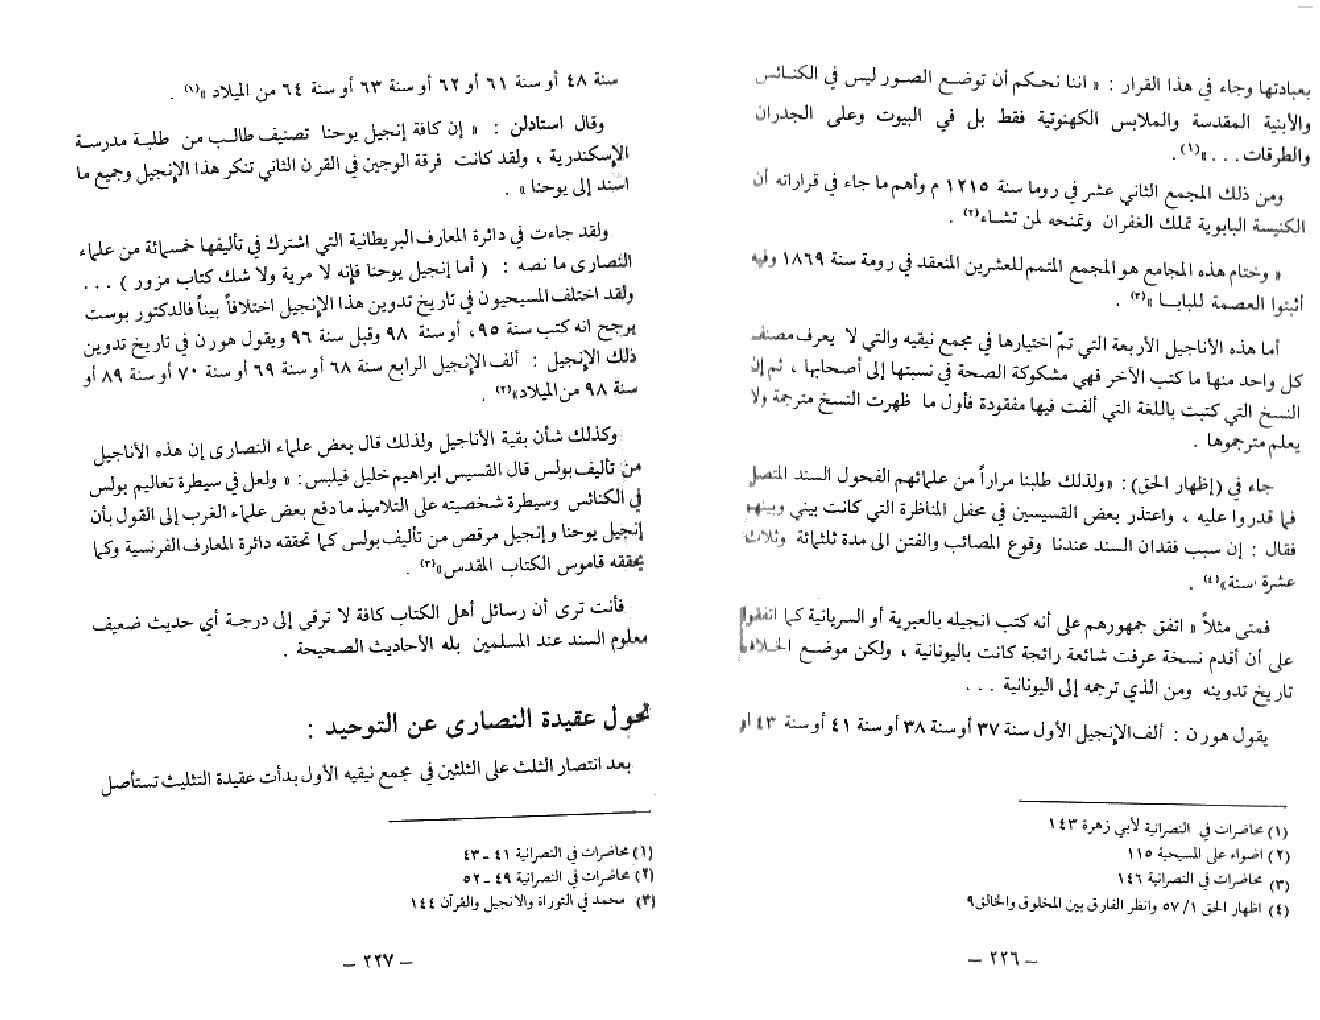 بعبادتها وجاء في هذا القرار : « اننا نحكم أن توضع الصور ليس في الكنائس
والأبنية المقدسة والملابس الكهنوتية فقط بل في البيوت وعلى الجدران
والطرقات . . . »(١) .
ومن ذلك المجمع الثاني عشر في روما سنة ١٢١٥ م وأهم ما جاء في قراراته أن
الكنيسة البابوية تملك الغفران وتمنحه لمن تشاء(٢) .
« وختام هذه المجامع هو المجمع المتمم للعشرين المنعقد في رومة سنة ١٨٦٩ وفيه
أثبتوا العصمة للبابا »(٣) .
أما هذه الأناجيل الأربعة التي تمّ اختيارها في مجمع نيقيه والتي لا يعرف مصنف
كل واحد منها ما كتب الآخر فهي مشكوكة الصحة في نسبتها إلى أصحابها ، ثم إن
النسخ التي كتبت باللغة التي ألفت فيها مفقودة فأول ما ظهرت النسخ مترجمة ولا
يعلم مترجموها .
جاء في (إظهار الحق) : «ولذلك طلبنا مراراً من علمائهم الفحول السند المتصل
فما قدروا عليه ، واعتذر بعض القسيسين في محفل المناظرة التي كانت بيني وبينهم
فقال : إن سبب فقدان السند عندنا وقوع المصائب والفتن الى مدة ثلثمائة وثلاث
عشرة سنة»(٤) .
فمتى مثلاً « اتفق جمهورهم على أنه كتب انجيله بالعبرية أو السريانية كما اتفقوا
على أن أقدم نسخة عرفت شائعة رائجة كانت باليونانية ، ولكن موضع الخلاف
تاريخ تدوينه ومن الذي ترجمه إلى اليونانية . . .
يقول هورن : ألف الإنجيل الأول سنة ٣٧ أو سنة ٣٨ أو سنة ٤١ أو سنة ٤٣ او
(١) محاضرات في النصرانية لأبي زهرة ١٤٣
(٢) اضواء على المسيحية ١١٥
(٣) محاضرات في النصرانية ١٤٦
(٤) اظهار الحق ١/ ٥٧ وانظر الفارق بين المخلوق والخالق ٩
— ٢٢٦ —
سنة ٤٨ أو سنة ٦١ أو ٦٢ أو سنة ٦٣ أو سنة ٦٤ من الميلاد »(١) .
وقال استادلن : « إن كافة إنجيل يوحنا تصنيف طالب من طلبة مدرسة
الإسكندرية ، ولقد كانت فرقة الوجين في القرن الثاني تنكر هذا الإنجيل وجميع ما
اسند إلى يوحنا » .
ولقد جاءت في دائرة المعارف البريطانية التي اشترك في تأليفها خمسمائة من علماء
النصارى ما نصه : ( أما إنجيل يوحنا فإنه لا مرية ولا شك كتاب مزور ) . . .
ولقد اختلف المسيحيون في تاريخ تدوين هذا الإنجيل اختلافاً بيناً فالدكتور بوست
يرجح انه كتب سنة ٩٥، أو سنة ٩٨ وقبل سنة ٩٦ ويقول هورن في تاريخ تدوين
ذلك الإنجيل : ألف الإنجيل الرابع سنة ٦٨ أو سنة ٦٩ أو سنة ٧٠ أو سنة ٨٩ أو
سنة ٩٨ من الميلاد»(٢) .
وكذلك شأن بقية الأناجيل ولذلك قال بعض علماء النصارى إن هذه الأناجيل
من تأليف بولس قال القسيس ابراهيم خليل فيلبس : « ولعل في سيطرة تعاليم بولس
في الكنائس وسيطرة شخصيته على التلاميذ ما دفع بعض علماء الغرب إلى القول بأن
إنجيل يوحنا وإنجيل مرقص من تأليف بولس كما تحققه دائرة المعارف الفرنسية وكما
يحققه قاموس الكتاب المقدس»(٣) .
فأنت ترى أن رسائل أهل الكتاب كافة لا ترقى إلى درجة أي حديث ضعيف
معلوم السند عند المسلمين بله الأحاديث الصحيحة .
تحول عقيدة النصارى عن التوحيد :
بعد انتصار الثلث على الثلثين في مجمع نيقيه الأول بدأت عقيدة التثليث تستأصل
(١) محاضرات في النصرانية ٤١ ـ ٤٣
(٢) محاضرات في النصرانية ٤٩ ـ ٥٢
(٣) محمد في التوراة والانجيل والقرآن ١٤٤
— ٢٢٧ —